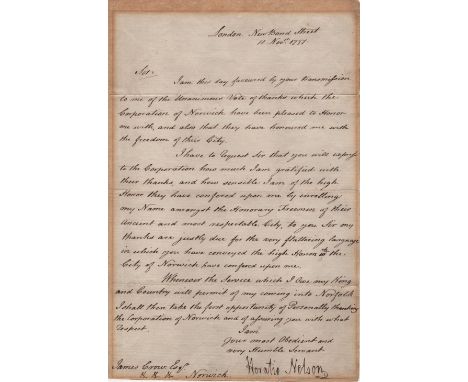 London New Bond Street
11 Novr. 1797
Sir,
I am this day favoured by your transmission
to me of the Unanimous Vote of thanks which the
Corporation of Norwich have been pleased to Honor
me with, and also that they have honoured me with
the freedom of their City.
I have to Request Sir that you will express
to the Corporation how much I am gratified with
their thanks, and how sensible I am of the high
Honor they have confered upon me by enrolling
my Name amongst the Honorary Freemen of their
Ancient and most respectable City, to you Sir my
thanks are justly due for the very flattering language
in which you have conveyed the high Honor the
City of Norwich have confered upon me.
Whenever the Service which I Owe my King
and Country will permit of my coming into Norfolk
I shall then take the first opportunity of Personally thanking
the Corporation of Norwich and of assuring you with what
respect
I am
Your most Obedient and
very Humble Servant
Horatio Nelson
James Crow Esqr.
&. &. &. Norwich